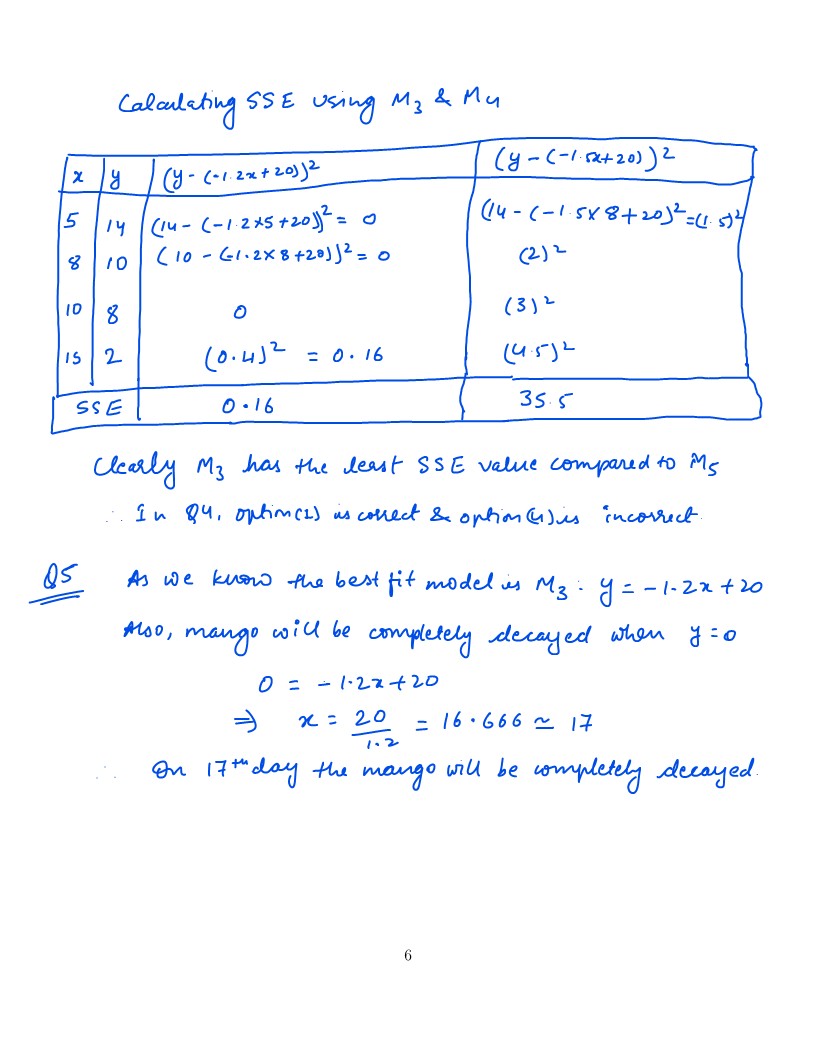 Calculating SSE using M3 & M4
x y (y - (-1.2x + 20))² (y - (-1.5x + 20))²
5 14 (14 - (-1.2×5 + 20))² = 0 (14 - (-1.5×8 + 20)² = (1.5)²
8 10 (10 - (-1.2×8 + 20))² = 0 (2)²
10 8 0 (3)²
15 2 (0.4)² = 0.16 (4.5)²
SSE 0.16 35.5
Clearly M3 has the least SSE value compared to M5
∴ In Q4, option(1) is correct & option(4) is incorrect.
Q5 As we know the best fit model is M3: y = -1.2x + 20
Also, mango will be completely decayed when y = 0
0 = -1.2x + 20
⇒ x = 20/1.2 = 16.666 ≃ 17
∴ On 17th day the mango will be completely decayed.
6